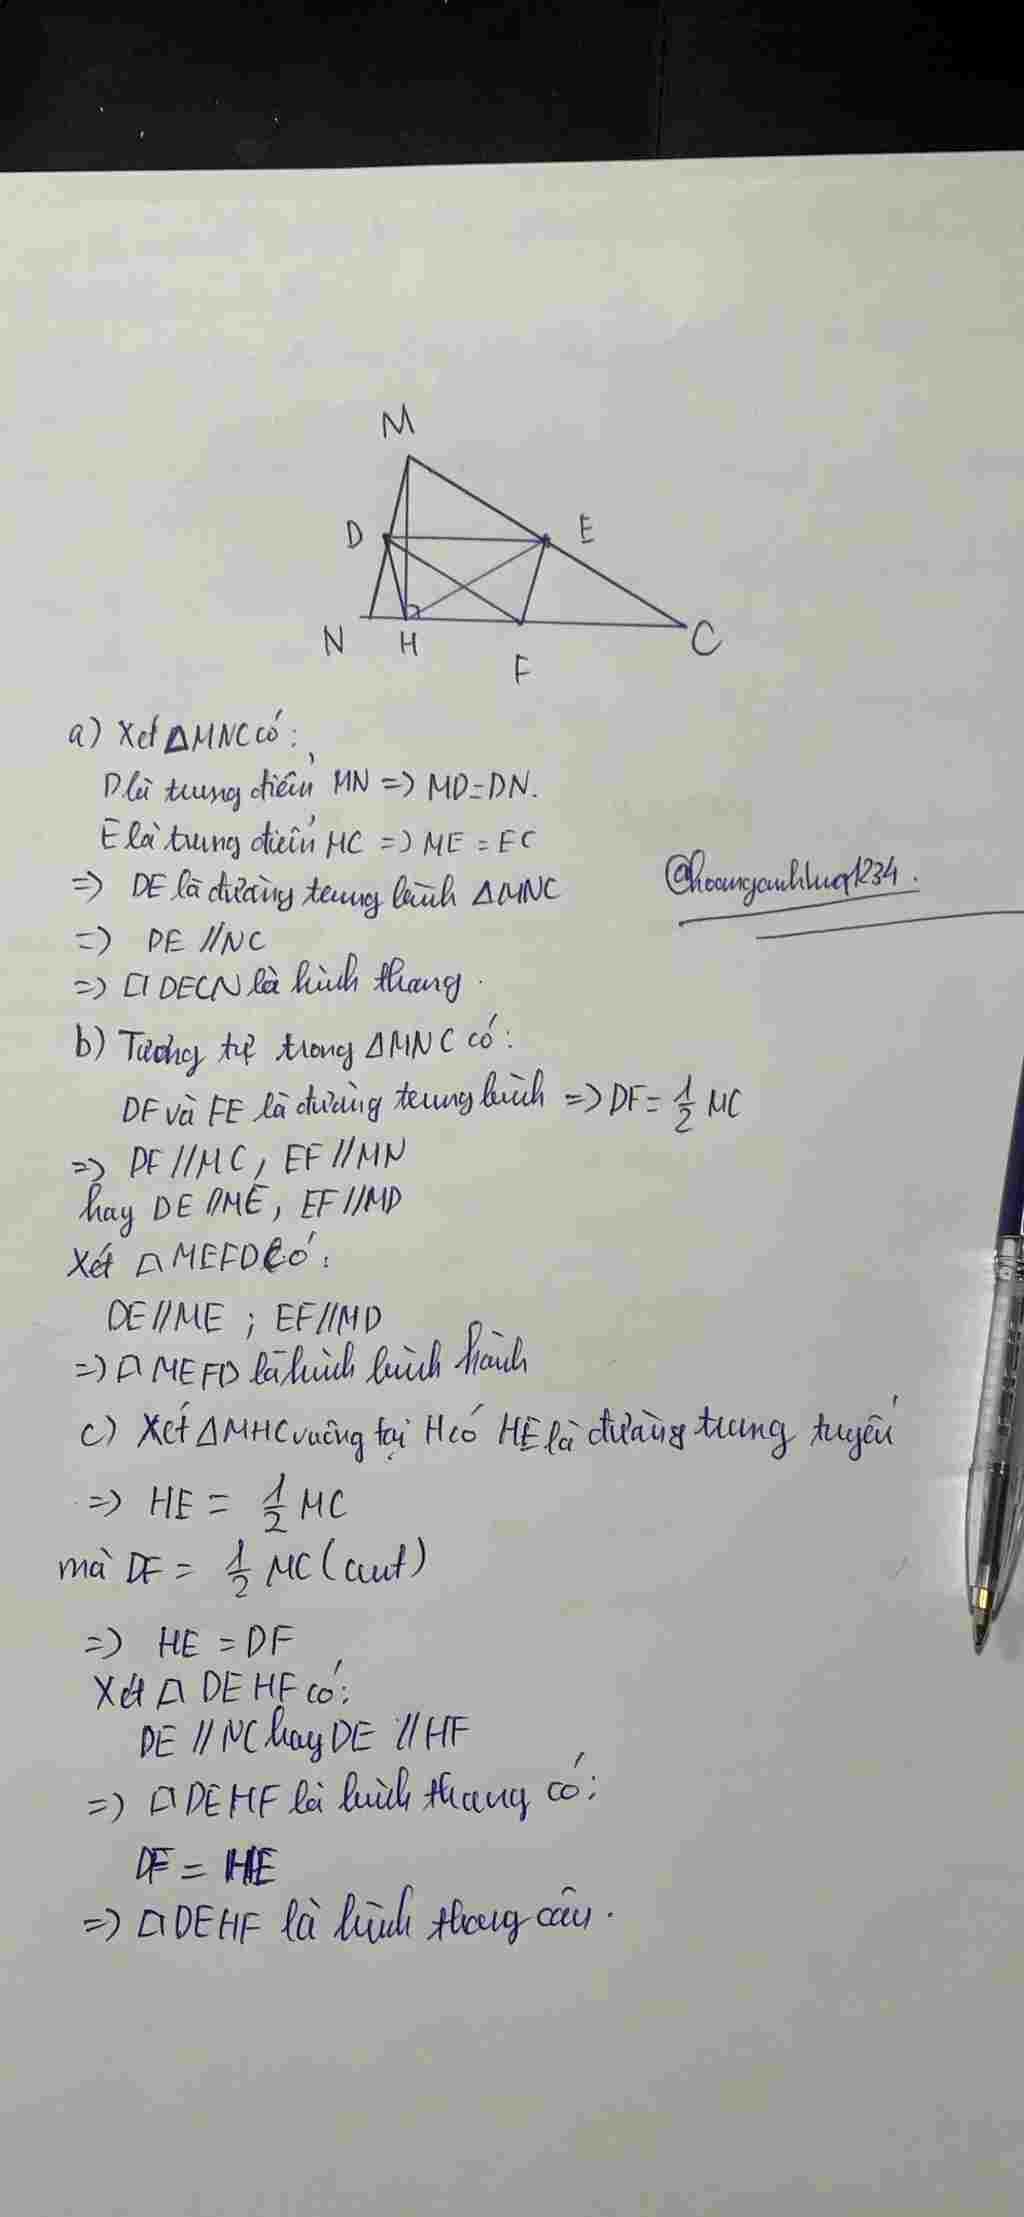 M
D
E
N
H
F
C
a) Xét △MNC có:
D là trung điểm MN => MD = DN.
E là trung điểm MC => ME = EC
=> DE là đường trung bình △MNC
@hoanganhluq1234.
=> DE // NC
=> □ DECN là hình thang.
b) Tương tự trong △MNC có:
DF và FE là đường trung bình => DF = 1/2 MC
=> DF // MC, EF // MN
hay DE // ME, EF // MD
Xét □ MEFD có:
DE // ME ; EF // MD
=> □ MEFD là hình bình hành
c) Xét △MHC vuông tại H có HE là đường trung tuyến
=> HE = 1/2 MC
mà DF = 1/2 MC (cmt)
=> HE = DF
Xét □ DEHF có:
DE // NC hay DE // HF
=> □ DEHF là hình thang có:
DF = HE
=> □ DEHF là hình thang cân.